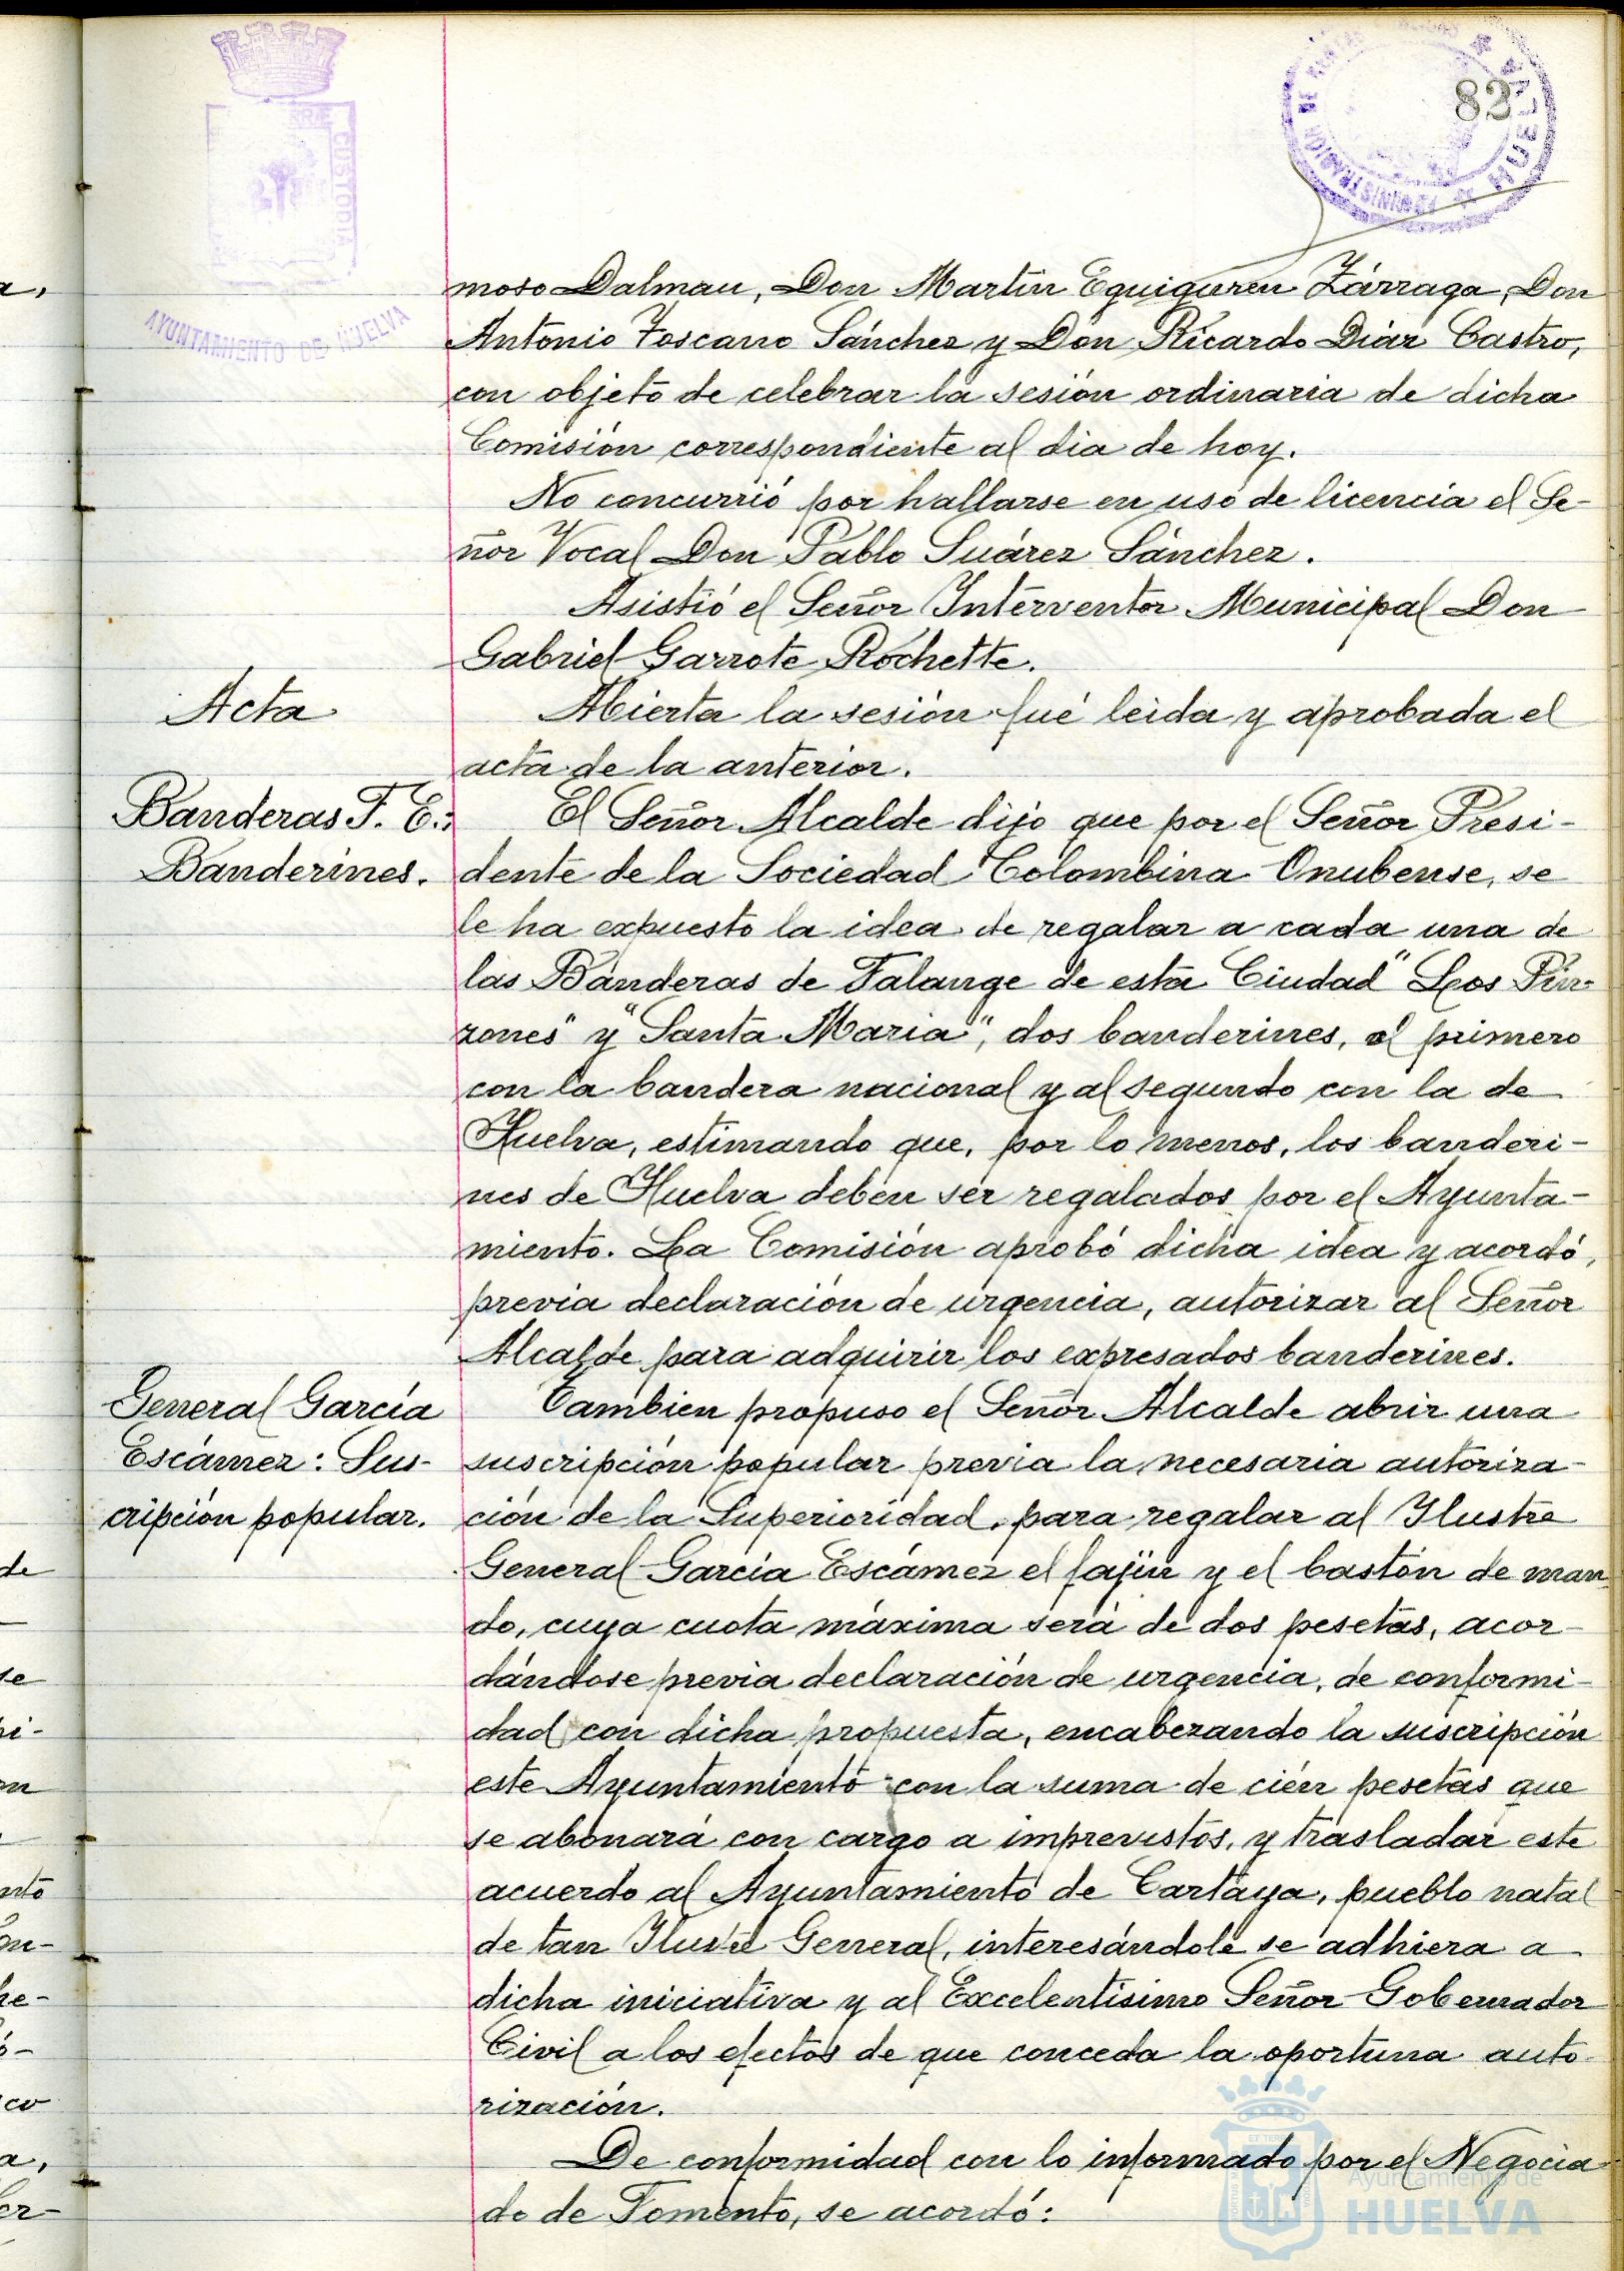 82
AYUNTAMIENTO DE HUELVA
CUSTODIA
ADMINISTRACION DE
HUELVA
moso Dalmau, Don Martin Eguiguren Zárraga, Don
Antonio Toscano Sánchez y Don Ricardo Diáz Castro,
con objeto de celebrar la sesión ordinaria de dicha
Comisión correspondiente al dia de hoy.
No concurrió por hallarse en uso de licencia el Se-
ñor Vocal Don Pablo Suárez Sánchez.
Asistió el Señor Interventor Municipal Don
Gabriel Garrote Rochette.
Acta
Abierta la sesión fué leida y aprobada el
acta de la anterior.
Banderas F. E.:
Banderines.
El Señor Alcalde dijo que por el Señor Presi-
dente de la Sociedad Colombina Onubense, se
le ha expuesto la idea de regalar a cada una de
las Banderas de Falange de esta Ciudad "Los Pin-
zones" y "Santa Maria", dos banderines, al primero
con la bandera nacional y al segundo con la de
Huelva, estimando que, por lo menos, los banderi-
nes de Huelva deben ser regalados por el Ayunta-
miento. La Comisión aprobó dicha idea y acordó,
previa declaración de urgencia, autorizar al Señor
Alcalde para adquirir los expresados banderines.
General García
Escámez: Sus-
cripción popular.
Tambien propuso el Señor Alcalde abrir una
suscripción popular previa la necesaria autoriza-
ción de la Superioridad, para regalar al Ilustre
General García Escámez el fajín y el bastón de man
do, cuya cuota máxima será de dos pesetas, acor-
dándose previa declaración de urgencia, de conformi-
dad con dicha propuesta, encabezando la suscripción
este Ayuntamiento con la suma de cien pesetas que
se abonará con cargo a imprevistos, y trasladar este
acuerdo al Ayuntamiento de Cartaya, pueblo natal
de tan Ilustre General, interesándole se adhiera a
dicha iniciativa y al Excelentísimo Señor Gobernador
Civil a los efectos de que conceda la oportuna auto-
rización.
De conformidad con lo informado por el Negocia
do de Fomento, se acordó:
Ayuntamiento de
HUELVA